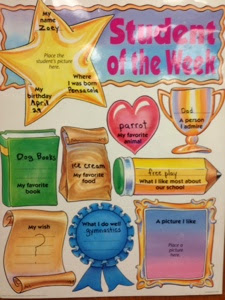 Student
of the Week
My
name
Zoey
Place the
student's picture
here.
Where
I was born
Pensacola
My
birthday
April
29
parrot
My favorite
animal
Dad
A person
I admire
Dog Books
My favorite
book
ice cream
My favorite
food
free play
What I like most about
our school
My wish
?
What I do well
gymnastics
A picture I like
Place a
picture
here.